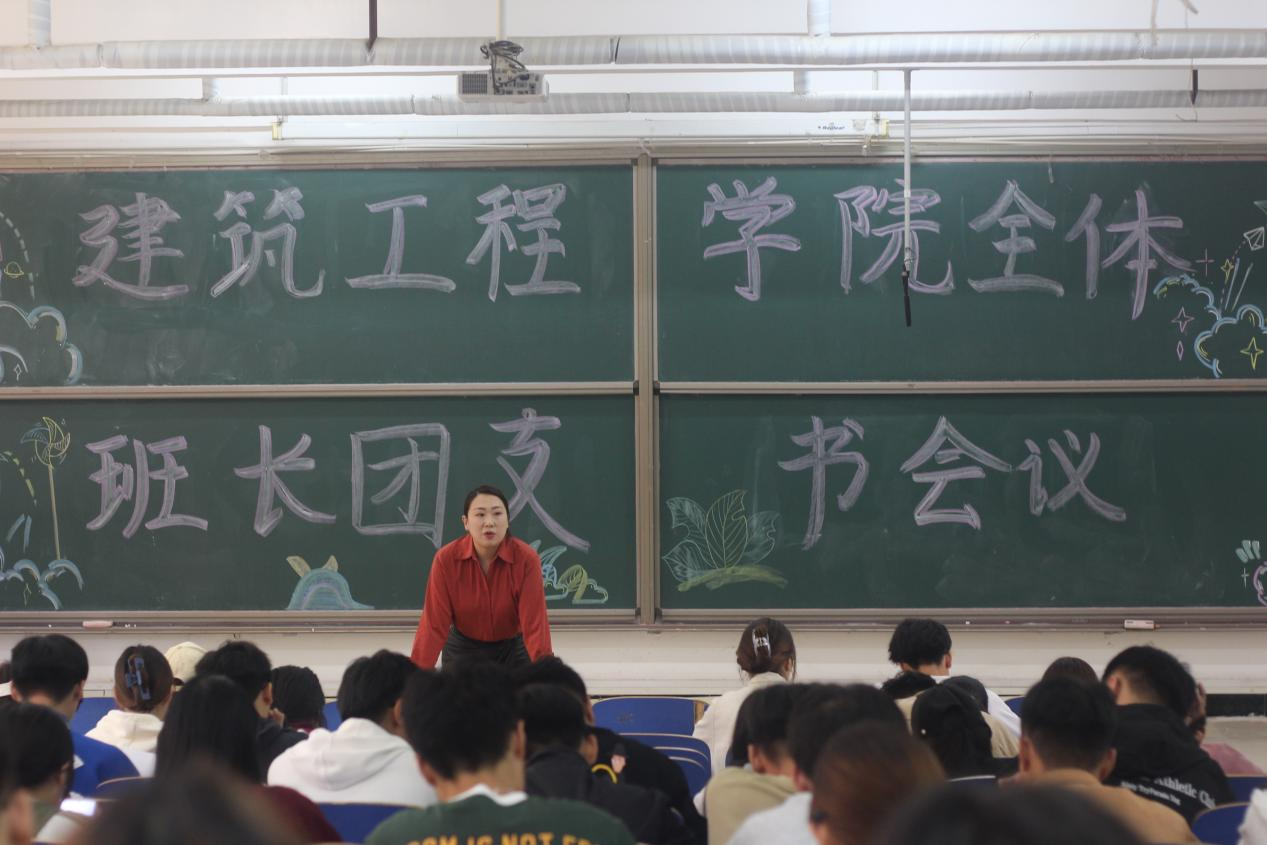 建筑工程学院全体
班长团支书会议
Athletic